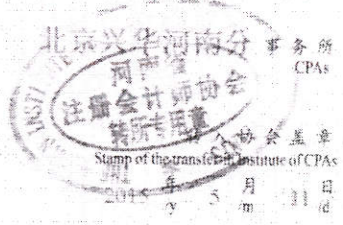 北京兴华河南分 事务所
CPAs
河南省
注册会计师协会
转所专用章
转入协会盖章
Stamp of the transfer-in Institute of CPAs
2015 年 5 月 11 日
y /m /d